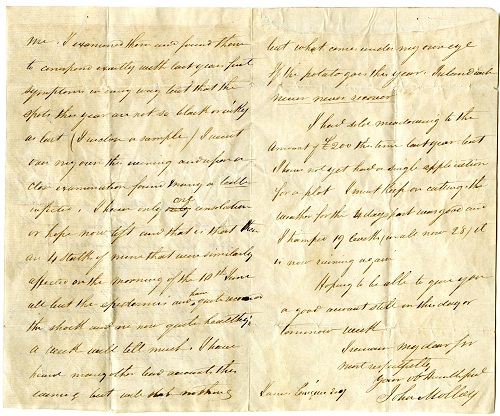 me. I examined them and found them
to correspond exactly with last years first
symptoms in every way but that the
spots this year are not so black or inky
as last (I enclose a sample) I went
over my own the evening and upon a
close examination found many a leaf
infected. I have only one consolation
or hope now left and that is that there
are 4 stalks of mine that were similarly
affected on the morning of the 10th June
all but the epidermis and have quite
the shock and are now quite healthy.
a week will tell much. I have
heard many other bad accounts this
evening but
but what came under my own eye
If the potato goes this year. Ireland will
never never recover
I had sold meadowing to the
amount of £200 this time last year but
I have not yet had a single application
for a plot I must keep on cutting the
weather for the 4 days past was good and
I tramped 19 in all now 25 & it
is now raining again
Hoping to be able to give you
a good account still on this day or
tomorrow week
I remain my dear Sir
most respectfully
your ob Humble Servt
John Molloy
James Esqr